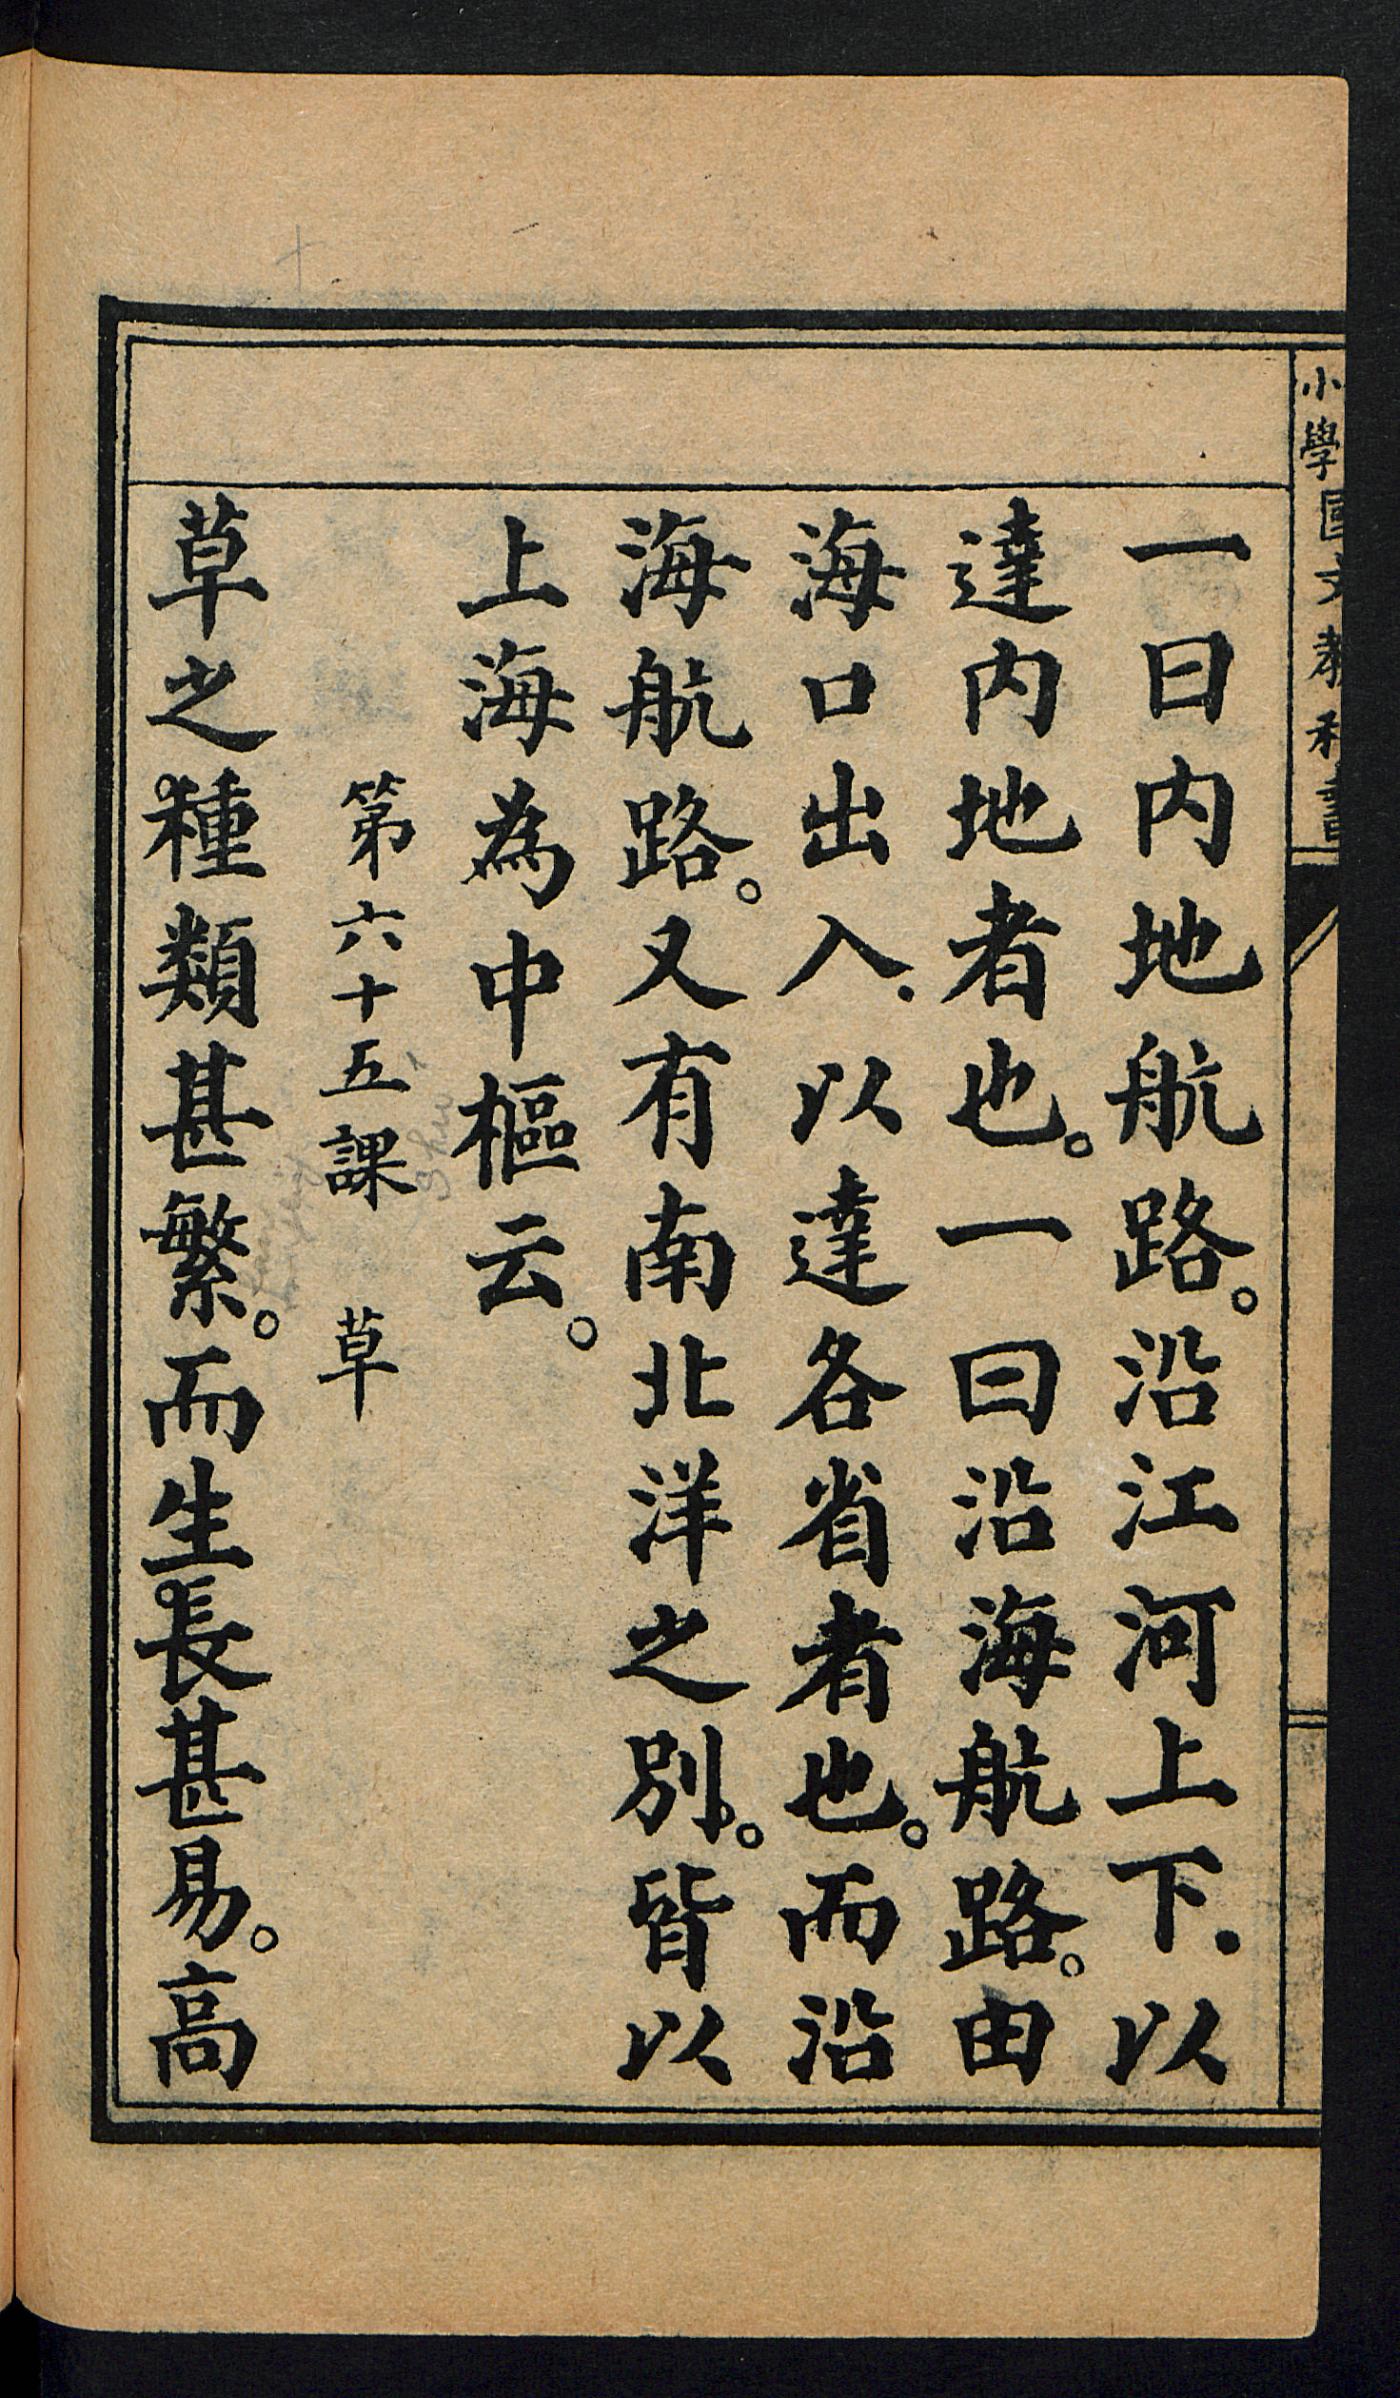 小學國文教科書
一曰內地航路。沿江河上下．以
達內地者也。一曰沿海航路。由
海口出入．以達各省者也。而沿
海航路。又有南北洋之別。皆以
上海為中樞云。
第六十五課　草
草之種類甚繁。而生長甚易。高